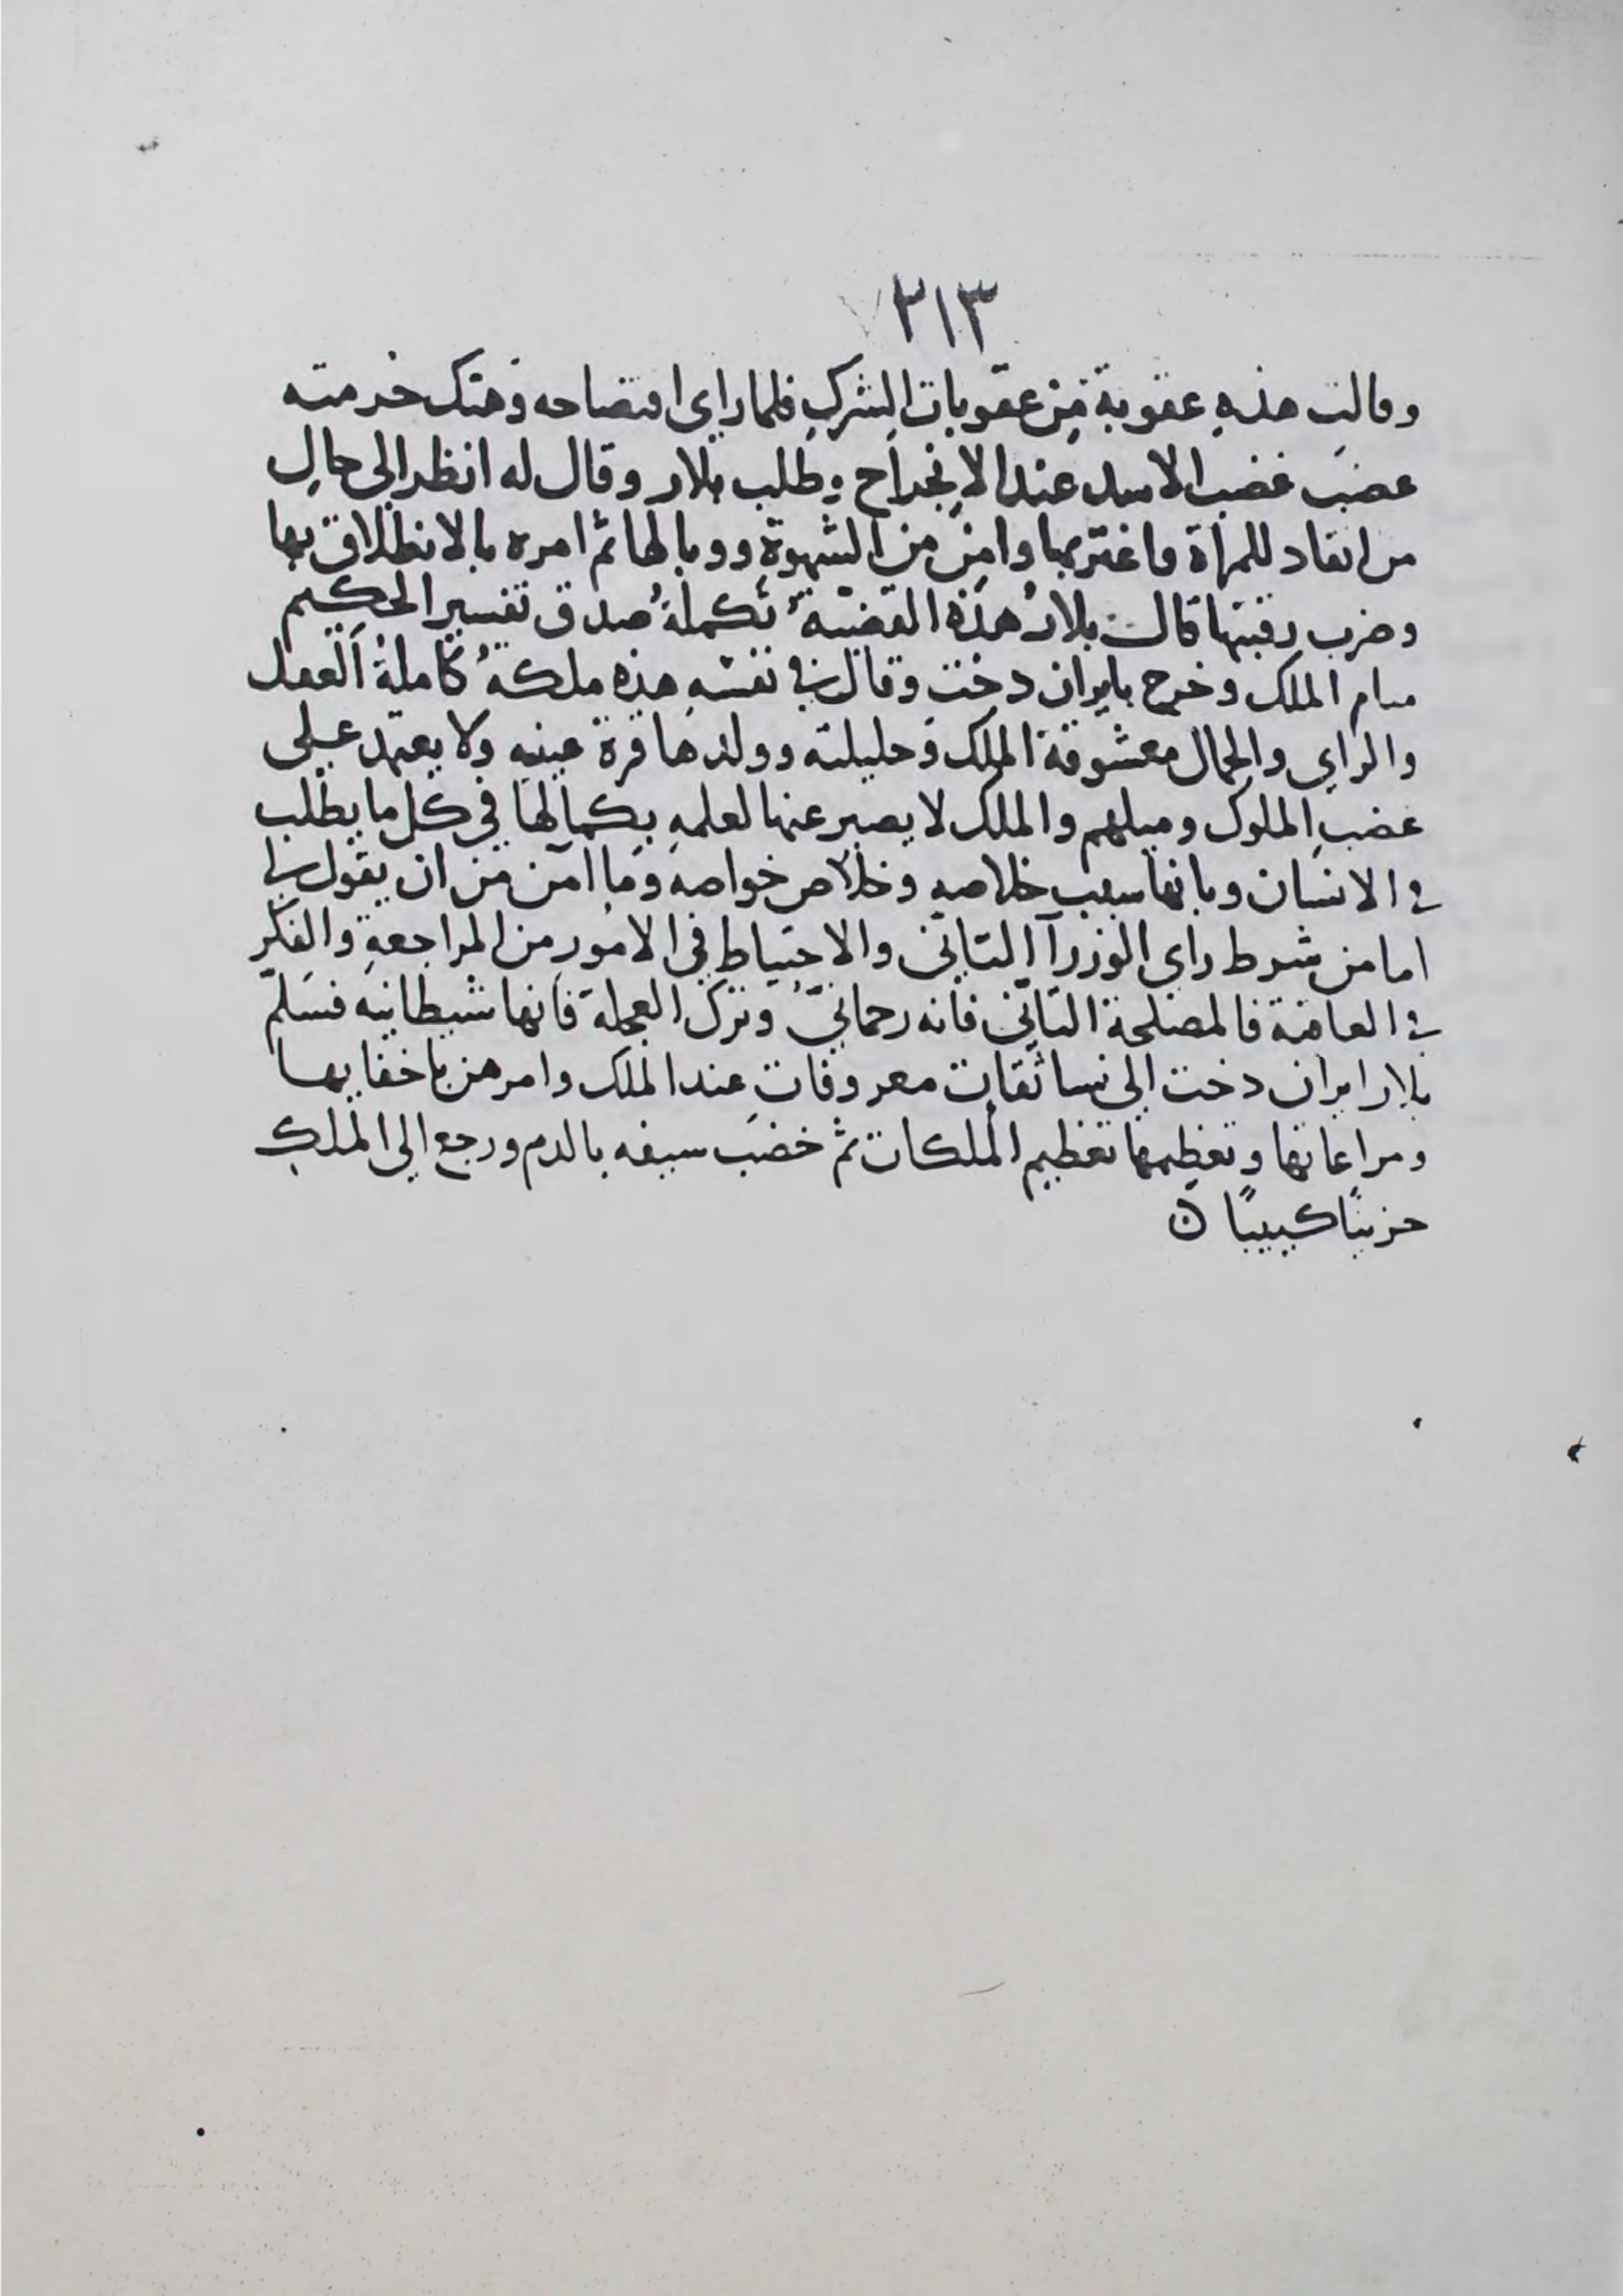 ٢١٣
وقالت هذه عقوبة من عقوبات الشرك فلما راى افتضاحه وهتك حرمته
غضب غضب الاسد عند الانجراح وطلب بلار وقال له انظر الى حال
من انقاد للمراة واغتر بها وامن من الشهوة ووبالها ثم امره بالانطلاق بها
وضرب رقبتها قالت بلار هذه القضية تكملة صدق تفسير الحكيم
الملك وخرج بايران دخت وقال في نفسه هذه ملكة كاملة العقل
والراي والجمال معشوقة الملك وحليلته وولدها قرة عينه ولا يعتمد على
غضب الملوك وميلهم والملك لا يصبر عنها لعلمه بكمالها في كل ما يطلب
في الانسان وبانها سبب خلاصه وخلاص خواصه وما امن من ان يقول لي
اما من شرط راي الوزرآ التاني والاحتياط في الامور من المراجعة والفكر
في العاقبة فالمصلحة التاني فانه رحماني وترك العجلة فانها شيطانية فسلم
بلار ايران دخت الى نسا ثقات معروفات عند الملك وامرهن باخفايها
ومراعاتها وتعظيمها تعظيم الملكات ثم خضب سيفه بالدم ورجع الى الملك
حزينًا كييبًا ٥